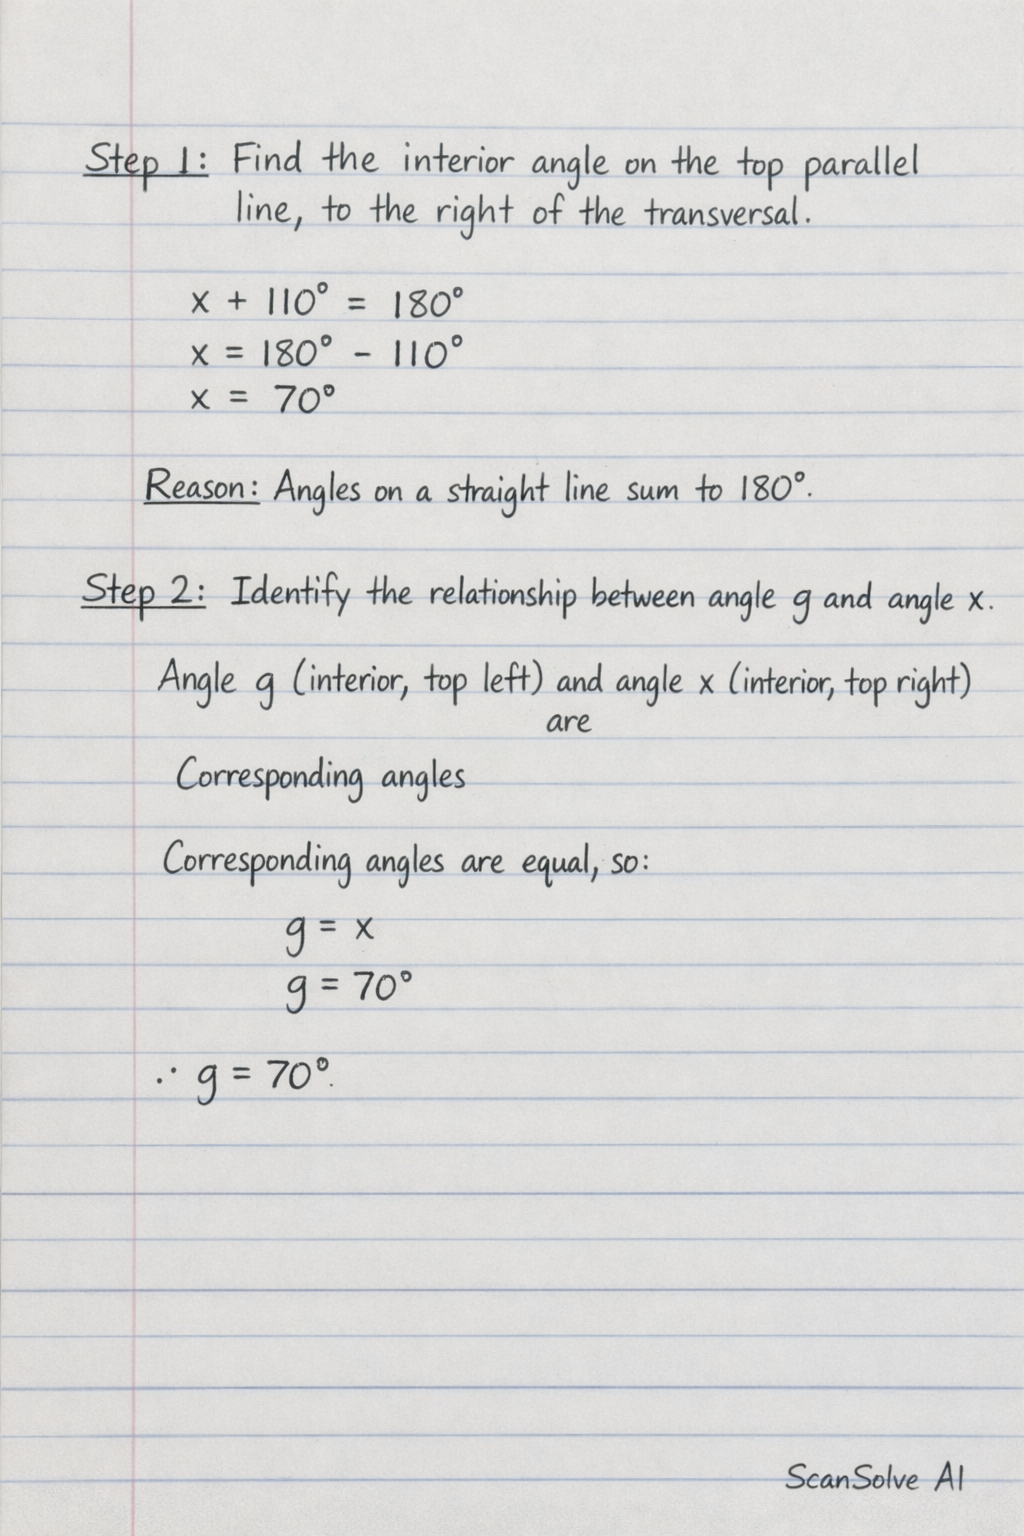 Step 1: Find the interior angle on the top parallel
line, to the right of the transversal.
x + 110° = 180°
x = 180° - 110°
x = 70°
Reason: Angles on a straight line sum to 180°.
Step 2: Identify the relationship between angle g and angle x.
Angle g (interior, top left) and angle x (interior, top right)
are
Corresponding angles
Corresponding angles are equal, so:
g = x
g = 70°
∴ g = 70°.
ScanSolve AI